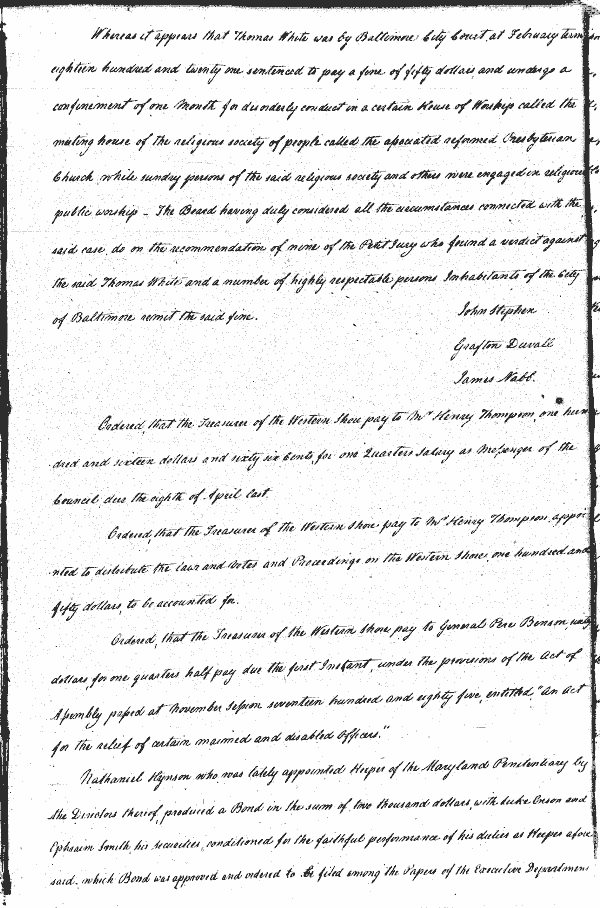 Whereas it appears that Thomas White was by Baltimore City Court, at February term
eighteen hundred and twenty one sentenced to pay a fine of fifty dollars, and undergo a
confinement of one Month, for disorderly conduct in a certain House of Worship called the
meeting house of the religious society of people called the associated reformed Presbyterian
Church, while sundry persons of the said religious society and others were engaged in religious
public worship – The Board having duly considered all the circumstances connected with the
said case, do on the recommendation of nine of the Petit Jury who found a verdict against
the said Thomas White and a number of highly respectable persons Inhabitants of the City
of Baltimore remit the said fine.
John Stephen
Grafton Duvall
James Nabb.
Ordered, that the Treasurer of the Western Shore pay to Mr Henry Thompson, one hun
dred and sixteen dollars and sixty six Cents, for one Quarters Salary as Messenger of the
Council, due the eighth of April last.
Ordered, that the Treasurer of the Western Shore pay to Mr Henry Thompson, appoi
nted to distribute the Laws and Votes and Proceedings on the Western Shore, one hundred and
fifty dollars, to be accounted for.
Ordered, that the Treasurer of the Western Shore, pay to General Pere Benson,
dollars, for one quarters half pay due the first Instant, under the provisions of the Act of
Assembly passed at November Session seventeen hundred and eighty five, entitled, "An Act
for the relief of certain maimed and disabled Officers."
Nathaniel Hynson who was lately appointed Keeper of the Maryland Penitentiary by
the Directors thereof, produced a Bond in the sum of two thousand dollars, with Luke Enson and
Ephraim Smith his securities, conditioned for the faithful performance of his duties as Keeper afore
said, which Bond was approved and ordered to be filed among the Papers of the Executive Department